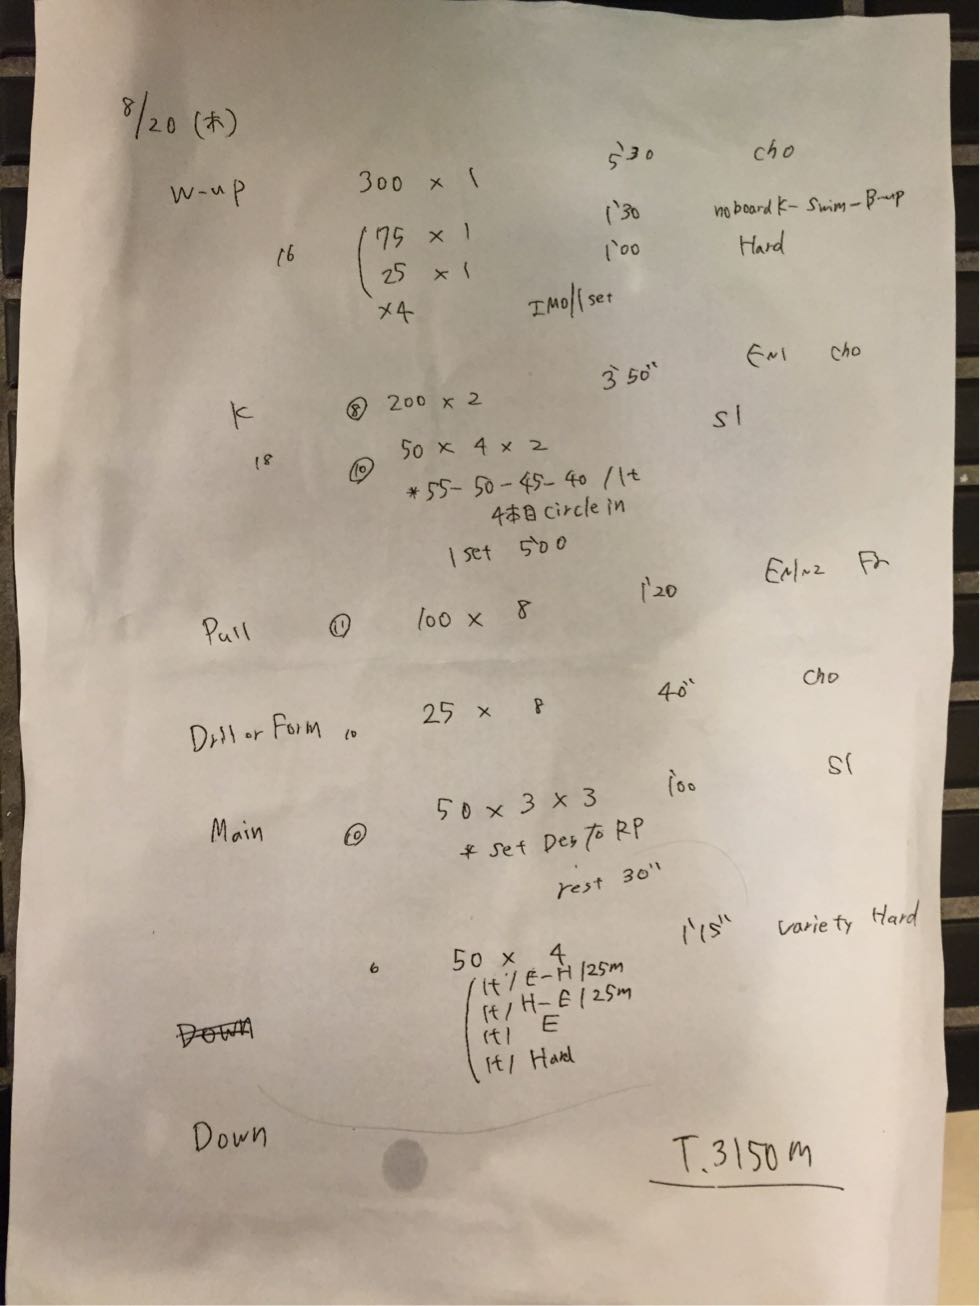 8/20 (木)
W-up 300 × 1 5'30 cho
16 ( 75 × 1 1'30 no board K- Swim - B-up
25 × 1 1'00 Hard
×4 IMO/1set
K ⑧ 200 × 2 3'50" EN1 cho
18 ⑩ 50 × 4 × 2 S1
*55-50-45-40 /1t
4本目 circle in
1 set 5'00
Pull ⑪ 100 × 8 1'20 EN1~2 Fr
Drill or Form 10 25 × 8 40" cho
Main ⑩ 50 × 3 × 3 1'00 S1
* set Des To RP
rest 30"
6 50 × 4 1'15" variety Hard
( 1t / E-H /25m
1t / H-E /25m
Down 1t / E
1t / Hard
Down T.3150m